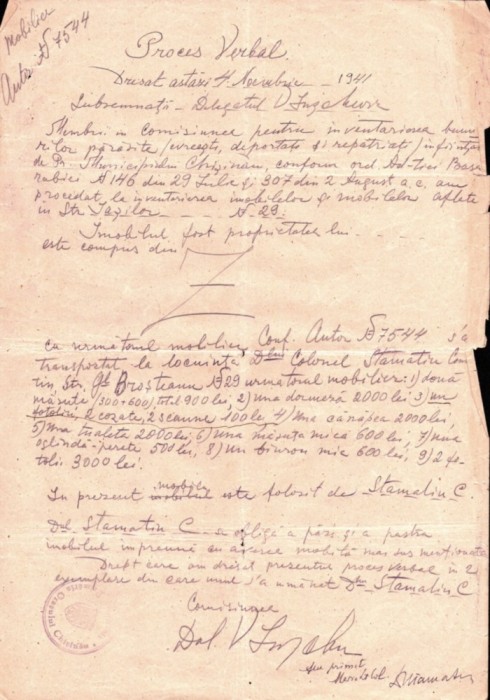 Mobilier
Autor № 7544
Proces Verbal
Dresat astăzi 4 Noembrie - 1941
Subsemnații - Delegatul V
Membrii în comisiunea pentru inventarierea bunu-
rilor părăsite /evreești, deportați și repatriați/ înființată
de Pr. Municipiului Chișinău, conform ord. Ad-ției Basa-
rabiei № 146 din 29 Iulie și 307 din 2 August a.c. am
procedat la inventarierea imobilelor și mobilelor aflate
în Str. № 23.
Imobilul fost proprietatea lui
este compus din:
cu următorul mobilier, Conf. Autor № 7544 s'a
transportat la locuința Dlui Colonel Stamatiu Con
tin, Str. Gl. Broșteanu № 29 următorul mobilier: 1) două
măsuțe (300+600) total 900 lei, 2) una dormeză 2000 lei 3) un
2 scaune 100 lei 4) Una canapea 2000 lei,
5) Una tualetă 2000 lei, 6) una măsuța mică 600 lei, 7) una
oglindă-perete 500 lei, 8) Un biurou mic 600 lei, 9) 2 fo-
tolii 3000 lei.
mobila
In prezent imobilul este folosit de Stamatiu C.
Dl. Stamatiu C - se obligă a păzi și a pastra
imobilul împreună cu aceea mobilă mai sus menționată
Drept care am dresat prezentul proces verbal în 2
exemplare din care unul s'a înmânat Dlui Stamatiu C
Comisiunea
Del. V
Am primit
Stamatiu